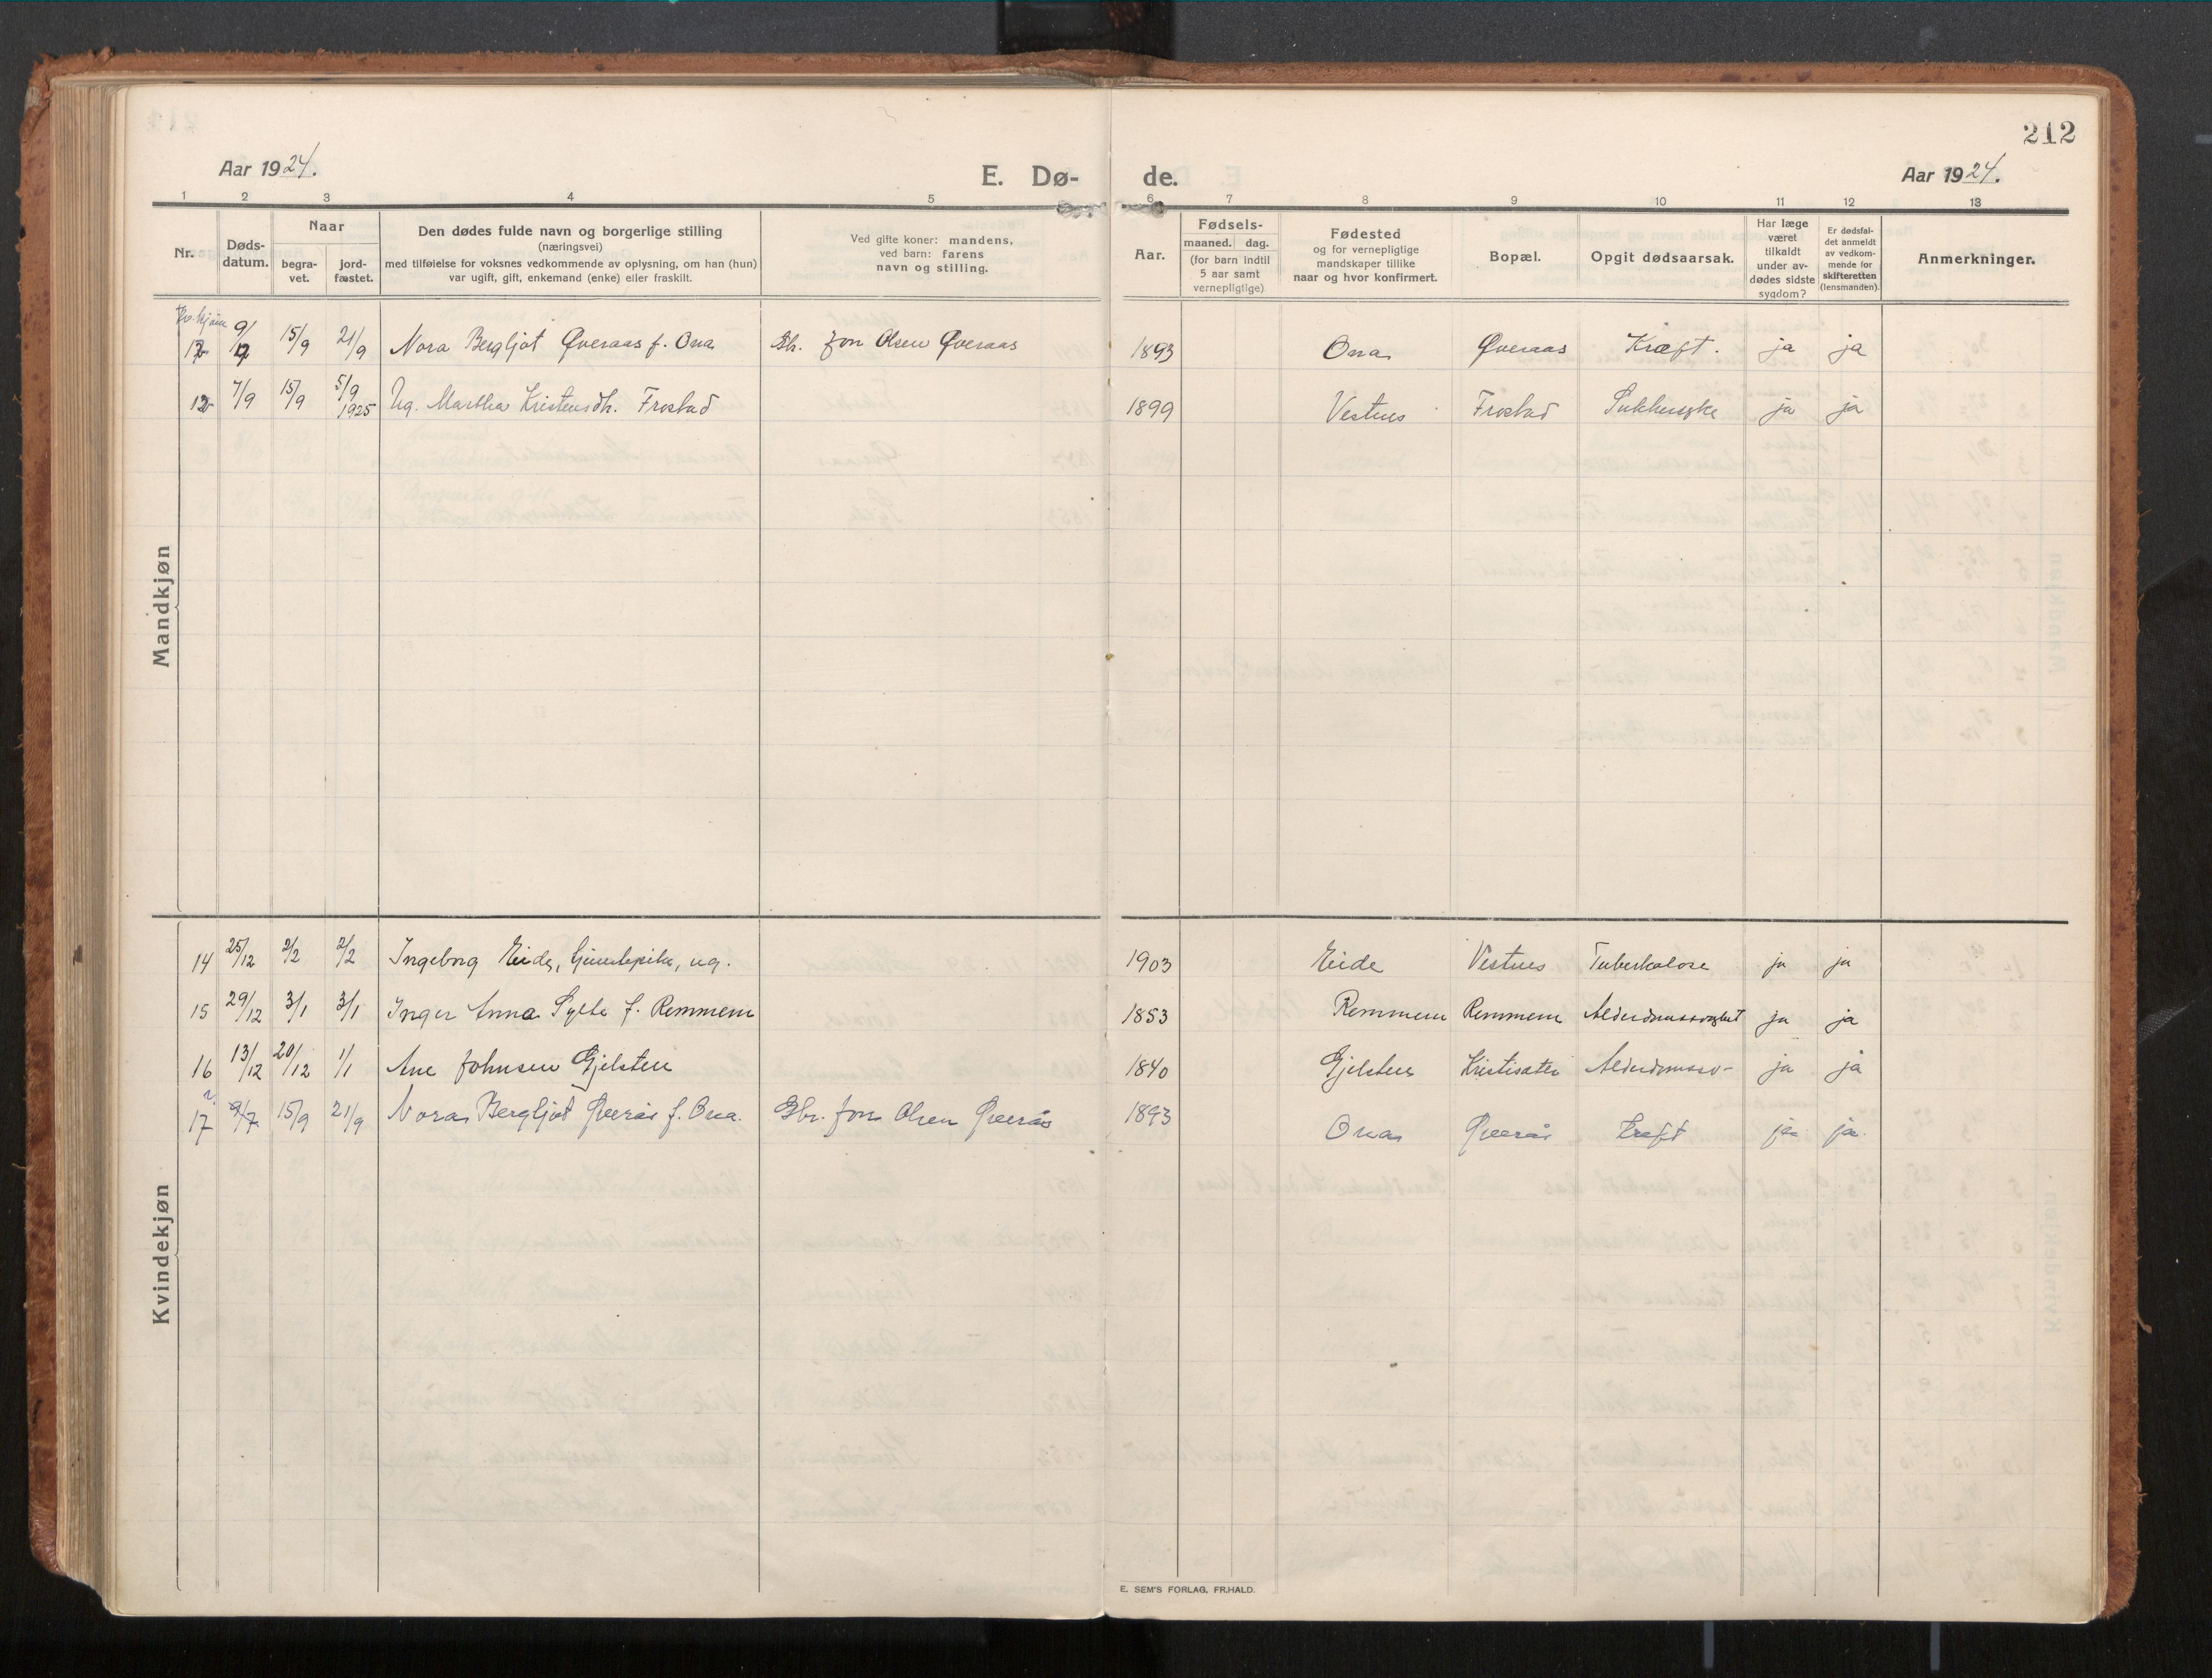 212
Aar 1924.
E. Dø-
de.
Aar 1924.
1 2 3 4 5 6 7 8 9 10 11 12 13
Nr.
Døds-
datum.
Naar
begra-
vet.
jord-
fæstet.
Den dødes fulde navn og borgerlige stilling
(næringsvei)
med tilføielse for voksnes vedkommende av oplysning, om han (hun)
var ugift, gift, enkemand (enke) eller fraskilt.
Ved gifte koner: mandens,
ved barn: farens
navn og stilling.
Aar.
Fødsels-
maaned. dag.
(for barn indtil
5 aar samt
vernepligtige)
Fødested
og for vernepligtige
mandskaper tillike
naar og hvor konfirmert.
Bopæl.
Opgit dødsaarsak.
Har læge
været
tilkaldt
under av-
dødes sidste
sygdom?
Er dødsfal-
det anmeldt
av vedkom-
mende for
skifteretten
(lensmanden).
Anmerkninger.
Mandkjøn
15/9 21/9 Nora Bergljot Øveraas f. Ona Gbr. Jon Olsen Øveraas 1893 Ona Øveraas Kræft. ja ja
7/9 15/9 5/9 1925 Ug. Martha Kristensdt. Frostad 1899 Vestnes Frostad Sukkersyke ja ja
Kvindekjøn
14 25/12 2/2 2/2 Ingeborg Eide, tjenestepike, ug. 1903 Eide Vestnes Tuberkulose ja ja
15 29/12 3/1 3/1 Inger Anna Sylte f. Remmem 1853 Remmem Remmem Alderdomssvaghet ja ja
16 13/12 20/12 1/1 Ane Johnsen Gjelsten 1840 Gjelsten Alderdomssv- ja ja
17 9/7 15/9 21/9 Nora Bergljot Øverås f. Ona. Gbr. Jon Olsen Øverås 1893 Ona Øverås kreft ja ja.
E. SEM'S FORLAG, FR.HALD.